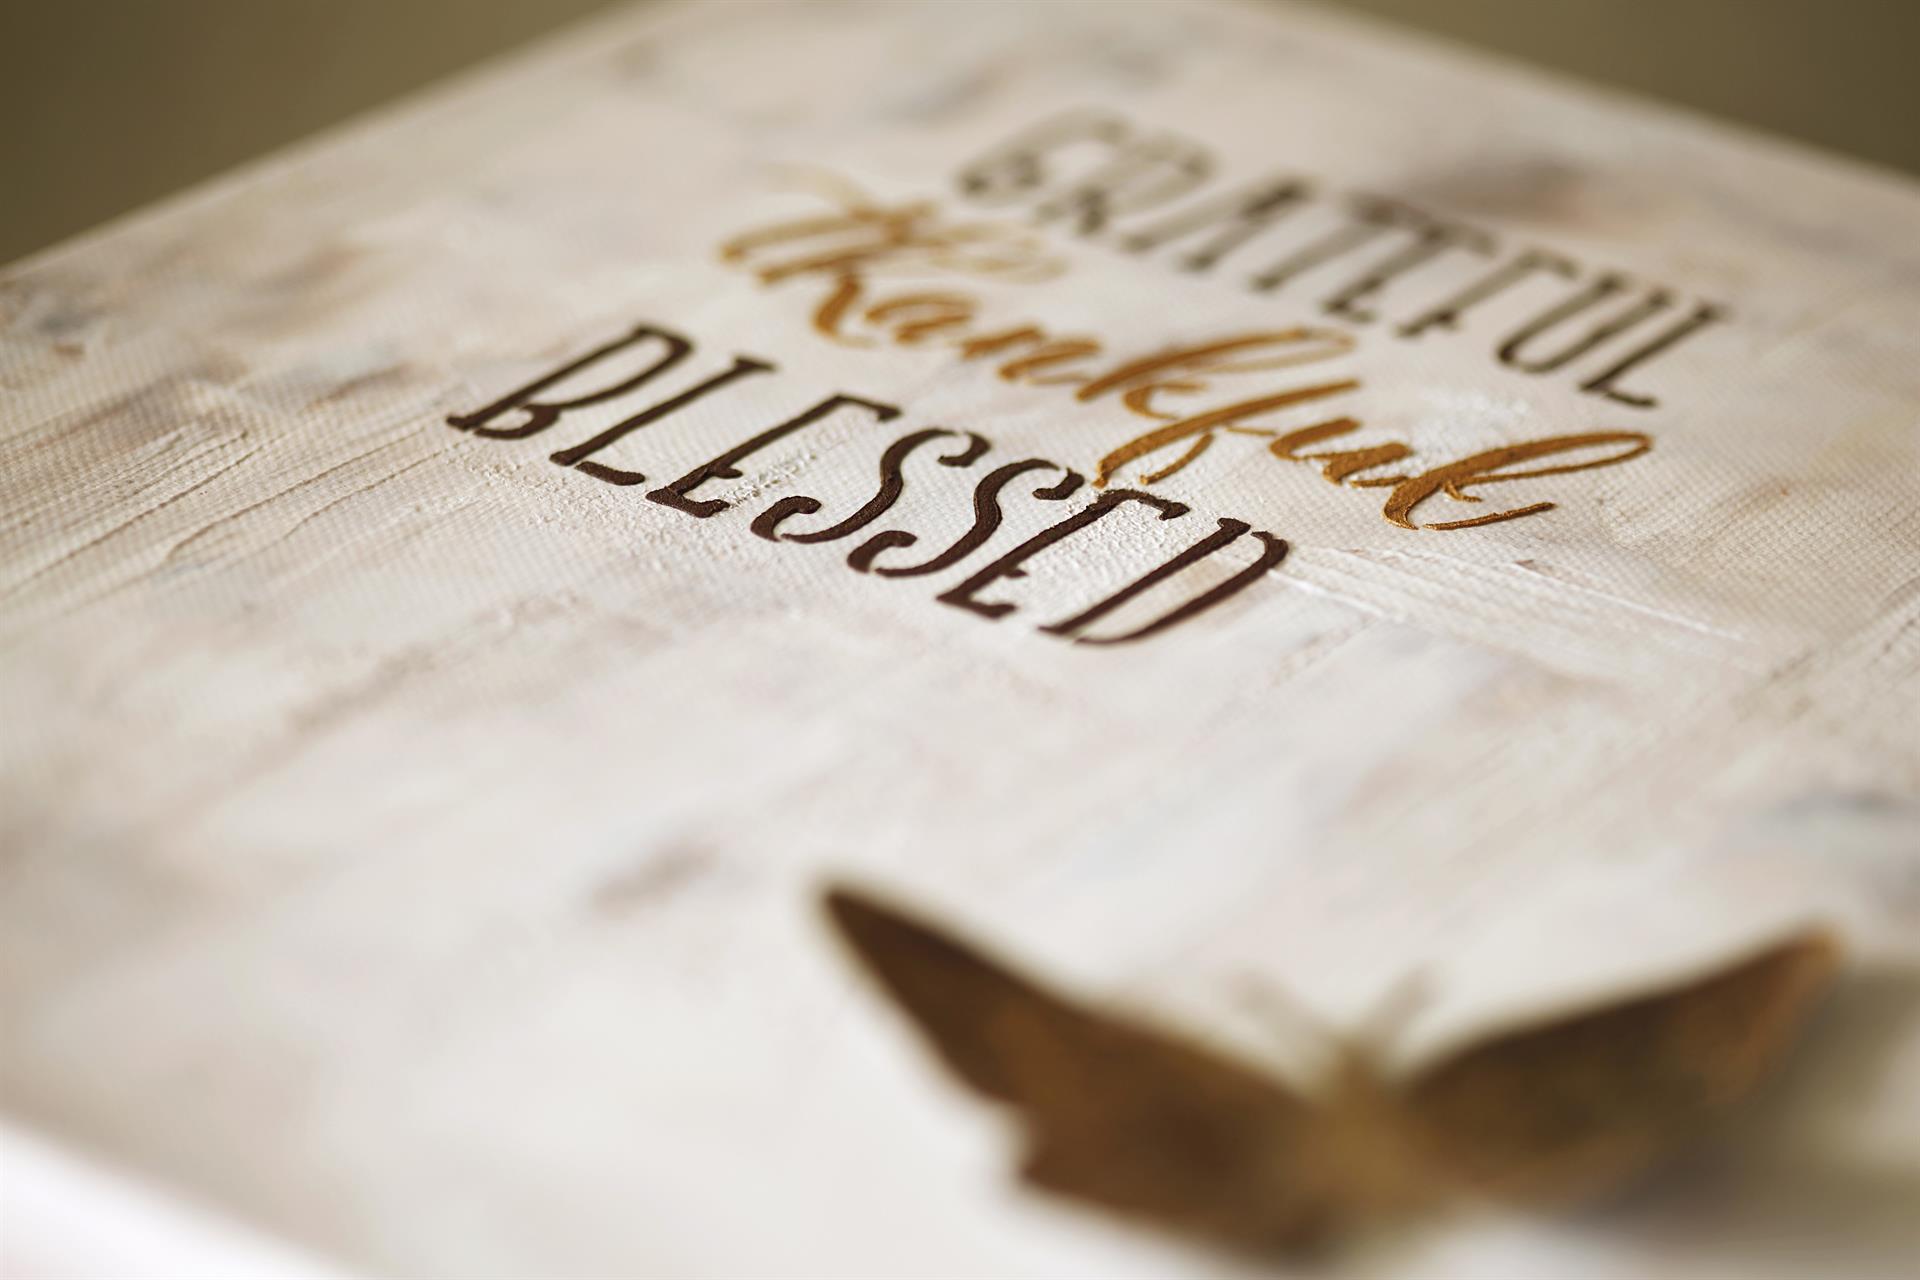 GRATEFUL
thankful
BLESSED